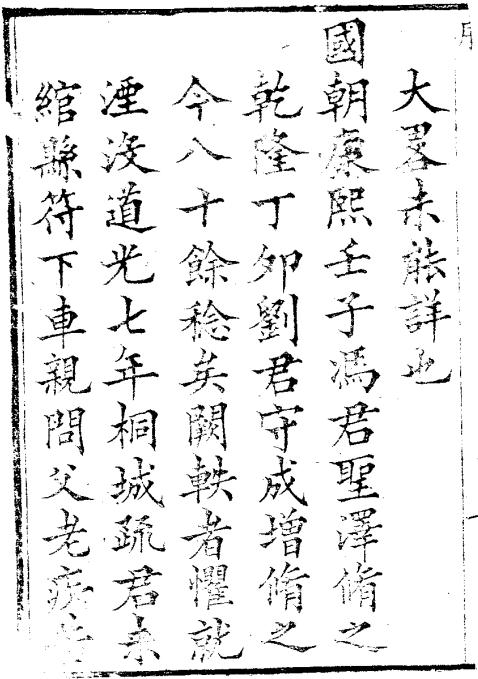 大畧未能詳也
國朝康熙壬子馮君聖澤脩之
乾隆丁卯劉君守成增脩之
今八十餘稔矣闕軼者懼就
湮没道光七年桐城疏君来
綰縣符下車親問父老疾苦